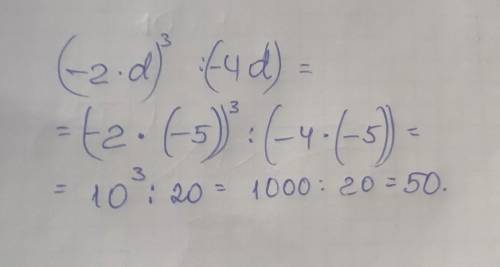 (-2·d)³ :(-4d) =
= (-2 · (-5))³ : (-4·(-5)) =
= 10³ : 20 = 1000 : 20 = 50.